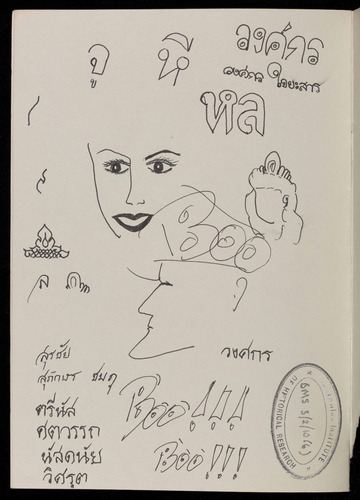 จู หี
วงศ์กร
วงศกร ไวยะสาร
หล
Boo
ล
วงศกร
สุรชัย
สุภักษร ชมภู
ตรีนัส
ศตวรรถ
นัสดนัย
วิศรุต
Boo!!!
Boo!!!
INSTITUTE OF HISTORICAL RESEARCH
BMS 5/2/10(6)